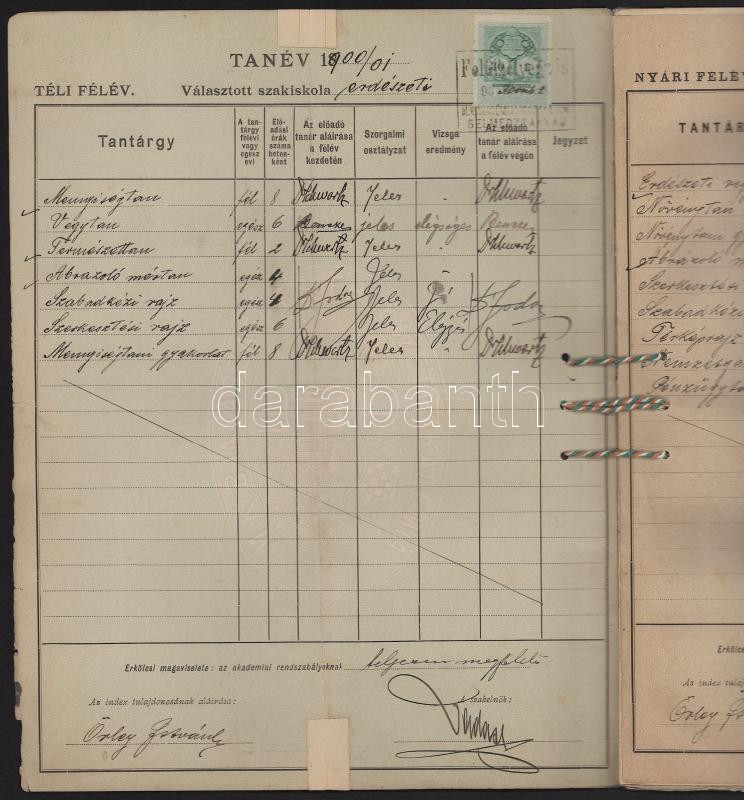 TANÉV 1900/01
TÉLI FÉLÉV. Választott szakiskola erdészeti
Tantárgy
A tantárgy félévi vagy egész évi
Előadási órák száma hetenként
Az előadó tanár aláirása a félév kezdetén
Szorgalmi osztályzat
Vizsga eredmény
Az előadó tanár aláirása a félév végén
Jegyzet
Mennyiségtan fél 8 Jeles
Vegytan egész 6 jeles elégséges
Természettan fél 2 Jeles
Ábrázoló mértan egész 4 Jeles
Szabadkézi rajz egész 4 Jeles Jó
Szerkesztési rajz egész 6 Jeles
Mennyiségtani gyakorlat fél 8 Jeles
darabanth
Erkölcsi magaviselete: az akadémiai rendszabályoknak teljesen megfelelő
Az index tulajdonosának aláirása: A szakelnök:
Őrley István
NYÁRI FÉLÉV
TANTÁR
Erdészeti
Növénytan
Növénytani
Ábrázoló
Szerkesztési
Szabadkézi
Térképrajz
Nemzetga
Pénzügyta
Erkölcsi
Az index tulajd
Őrley